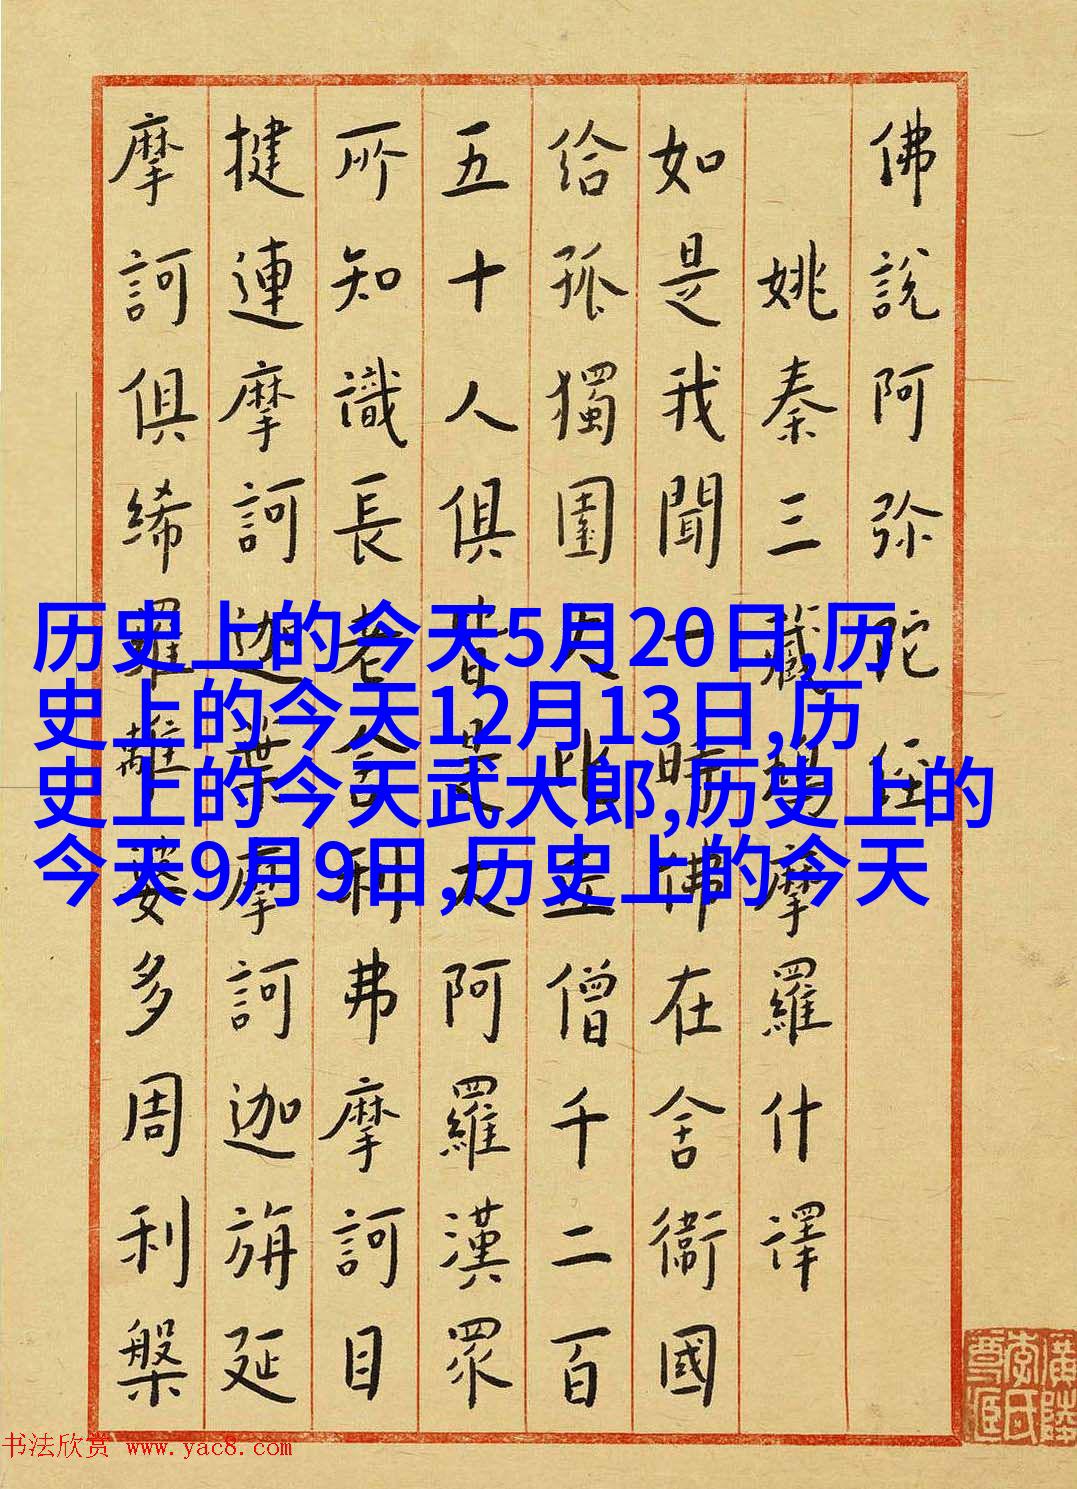 佛說阿弥陀经
姚秦三藏鳩摩羅什譯
如是我聞一時佛在舍衛國
給孤獨園大比丘僧千二百
五十人俱皆是大阿羅漢眾
所知識長老舍利弗摩訶目
揵連摩訶迦葉摩訶迦旃延
摩訶俱絺羅離婆多周利槃
历史上的今天5月20日,历
史上的今天12月13日,历
史上的今天武大郎,历史上的
今天9月9日,历史上的今天
书法欣赏 www.yac8.com